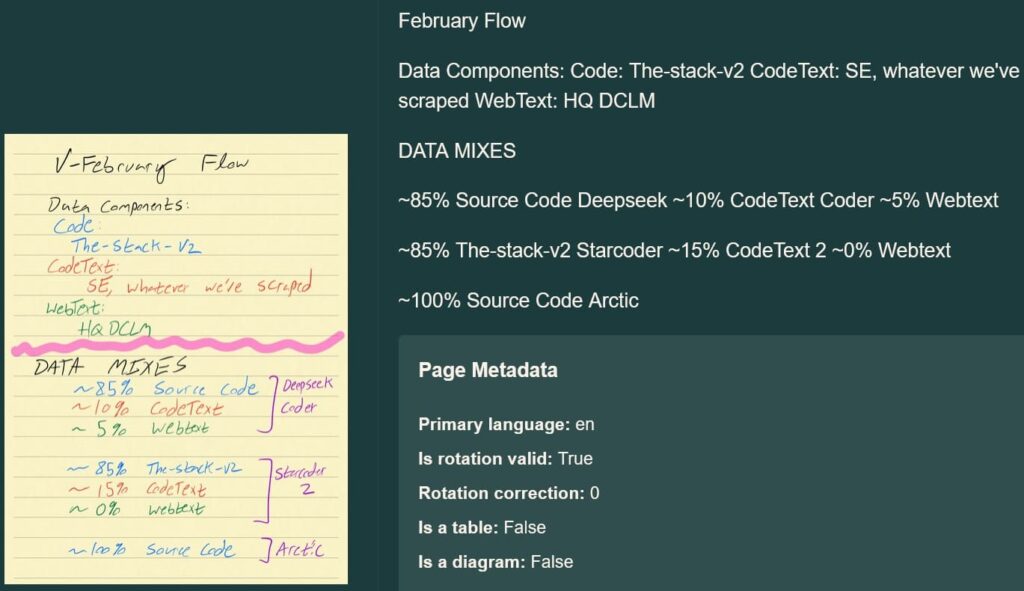 V-February Flow
Data Components:
Code:
The-stack-v2
CodeText:
SE, whatever we've scraped
WebText:
HQ DCLM
DATA MIXES
~85% Source Code
~10% CodeText
~5% Webtext
Deepseek
Coder
~85% The-stack-v2
~15% CodeText
~0% Webtext
Starcoder
2
~100% Source Code
Arctic
February Flow
Data Components: Code: The-stack-v2 CodeText: SE, whatever we've
scraped WebText: HQ DCLM
DATA MIXES
~85% Source Code Deepseek ~10% CodeText Coder ~5% Webtext
~85% The-stack-v2 Starcoder ~15% CodeText 2 ~0% Webtext
~100% Source Code Arctic
Page Metadata
Primary language: en
Is rotation valid: True
Rotation correction: 0
Is a table: False
Is a diagram: False